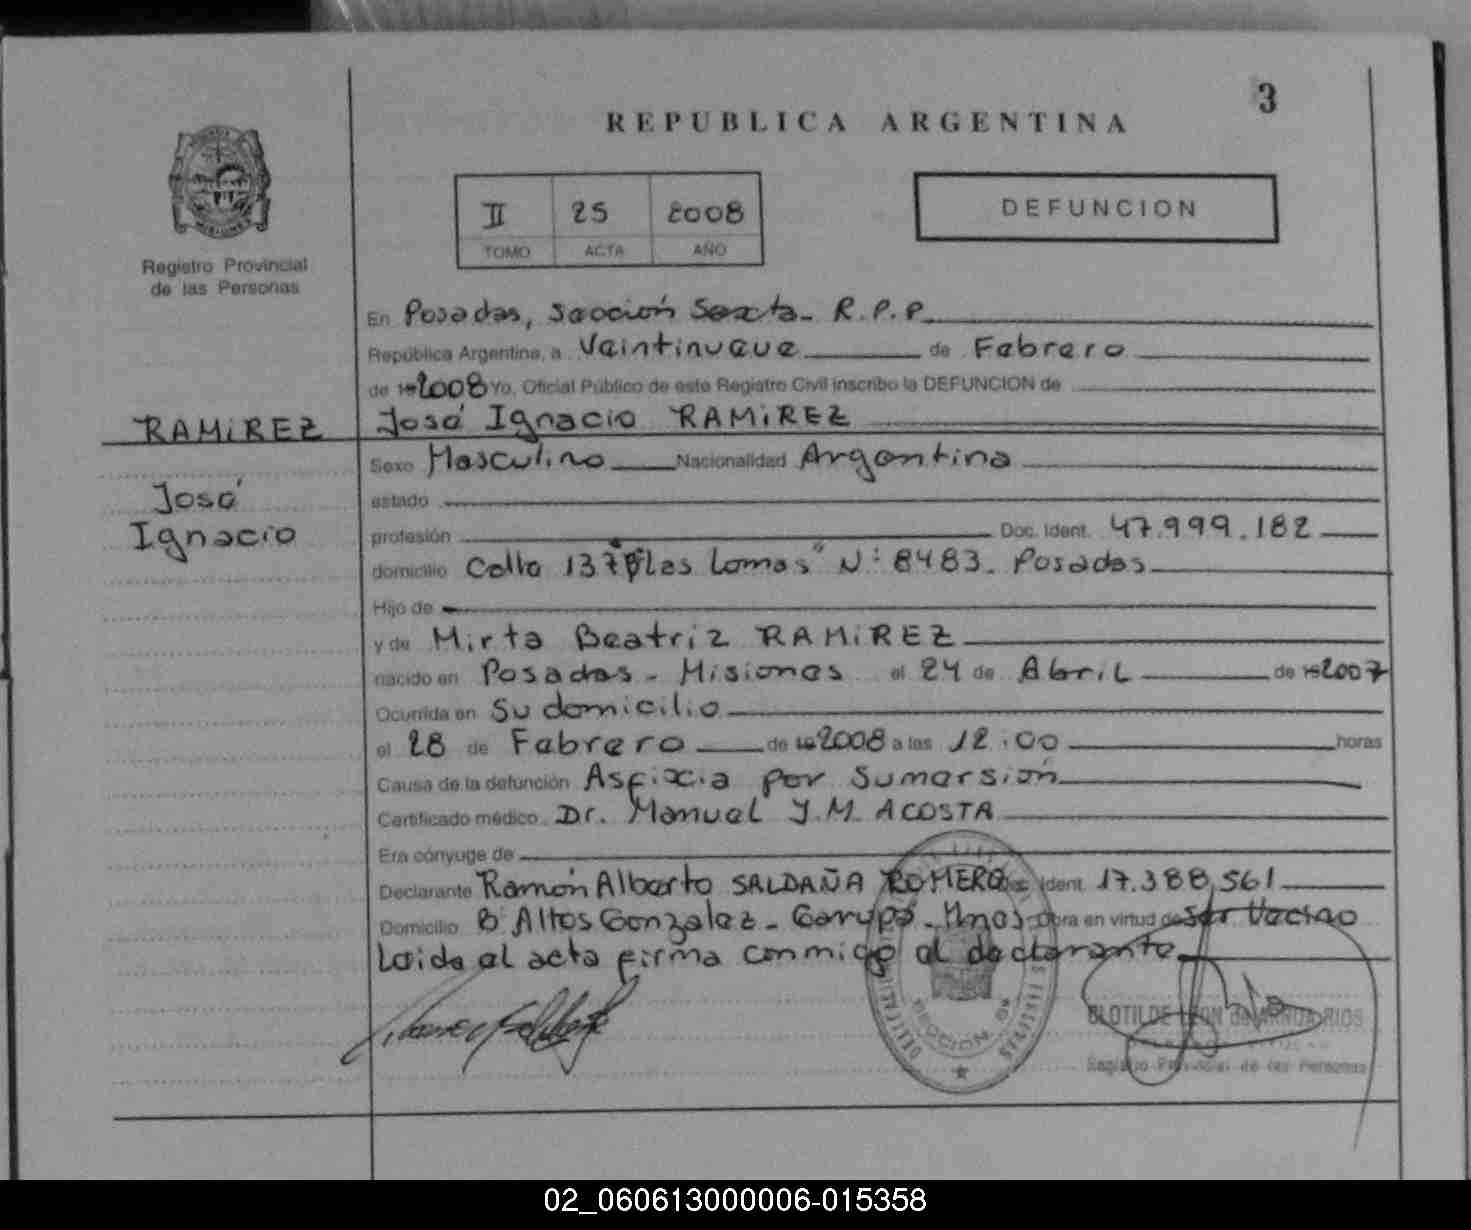 3
REPUBLICA ARGENTINA
II 25 2008
TOMO ACTA AÑO
DEFUNCION
Registro Provincial
de las Personas
En Posadas, Sección Sexta- R.P.P.
República Argentina, a Veintinueve de Febrero
de 19 2008 Yo, Oficial Público de este Registro Civil inscribo la DEFUNCION de
RAMIREZ José Ignacio RAMIREZ
Sexo Masculino Nacionalidad Argentina
José
estado
Ignacio
profesión Doc. Ident. 47.999.182
domicilio Calle 137 "Las Lomas" Nº 8483. Posadas
Hijo de
y de Mirta Beatriz RAMIREZ
nacido en Posadas - Misiones el 24 de Abril de 19 2007
Ocurrida en Su domicilio
el 28 de Febrero de 19 2008 a las 12:00 horas
Causa de la defunción Asfixia por Sumersión
Certificado médico Dr. Manuel J.M. ACOSTA
Era cónyuge de
Declarante Ramón Alberto SALDAÑA ROMERO Doc. Ident. 17.388.561
Domicilio Bº Altos Gonzalez - Garupá - Mnes - Obra en virtud de ser Vecino
Leida el acta firma conmigo el declarante
SECCION 6ª
CLOTILDE LEON de RIOS
Registro Provincial de las Personas
02_060613000006-015358